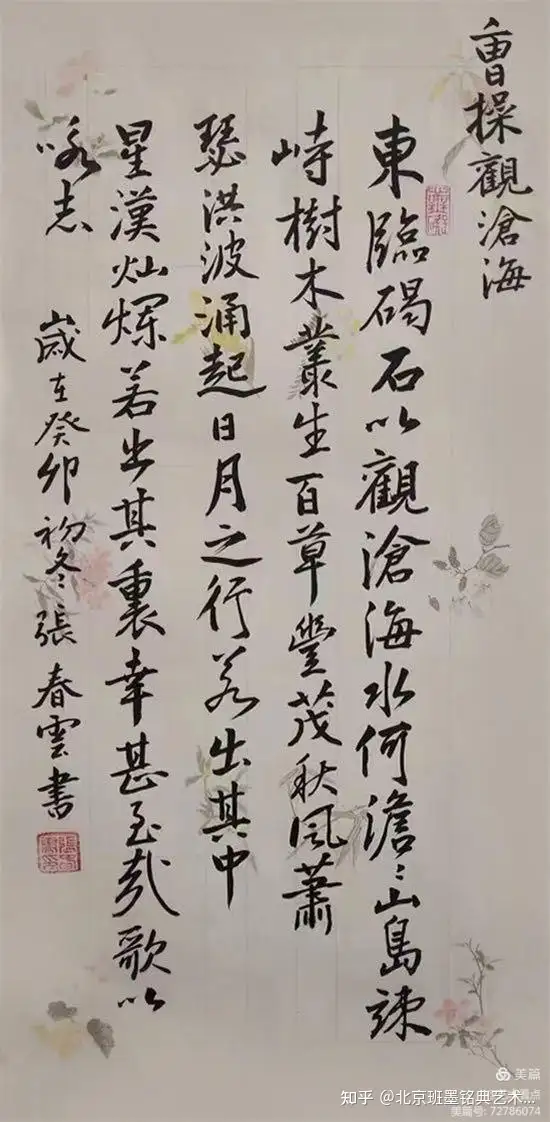 曹操觀滄海
東臨碣石以觀滄海水何澹〻山島竦
峙樹木叢生百草豐茂秋風蕭
瑟洪波涌起日月之行若出其中
星漢灿爛若出其裏幸甚至哉歌以
咏志
歲在癸卯初冬張春雲書
美篇
知乎 @北京班墨铭典艺术...
美篇号: 72786074